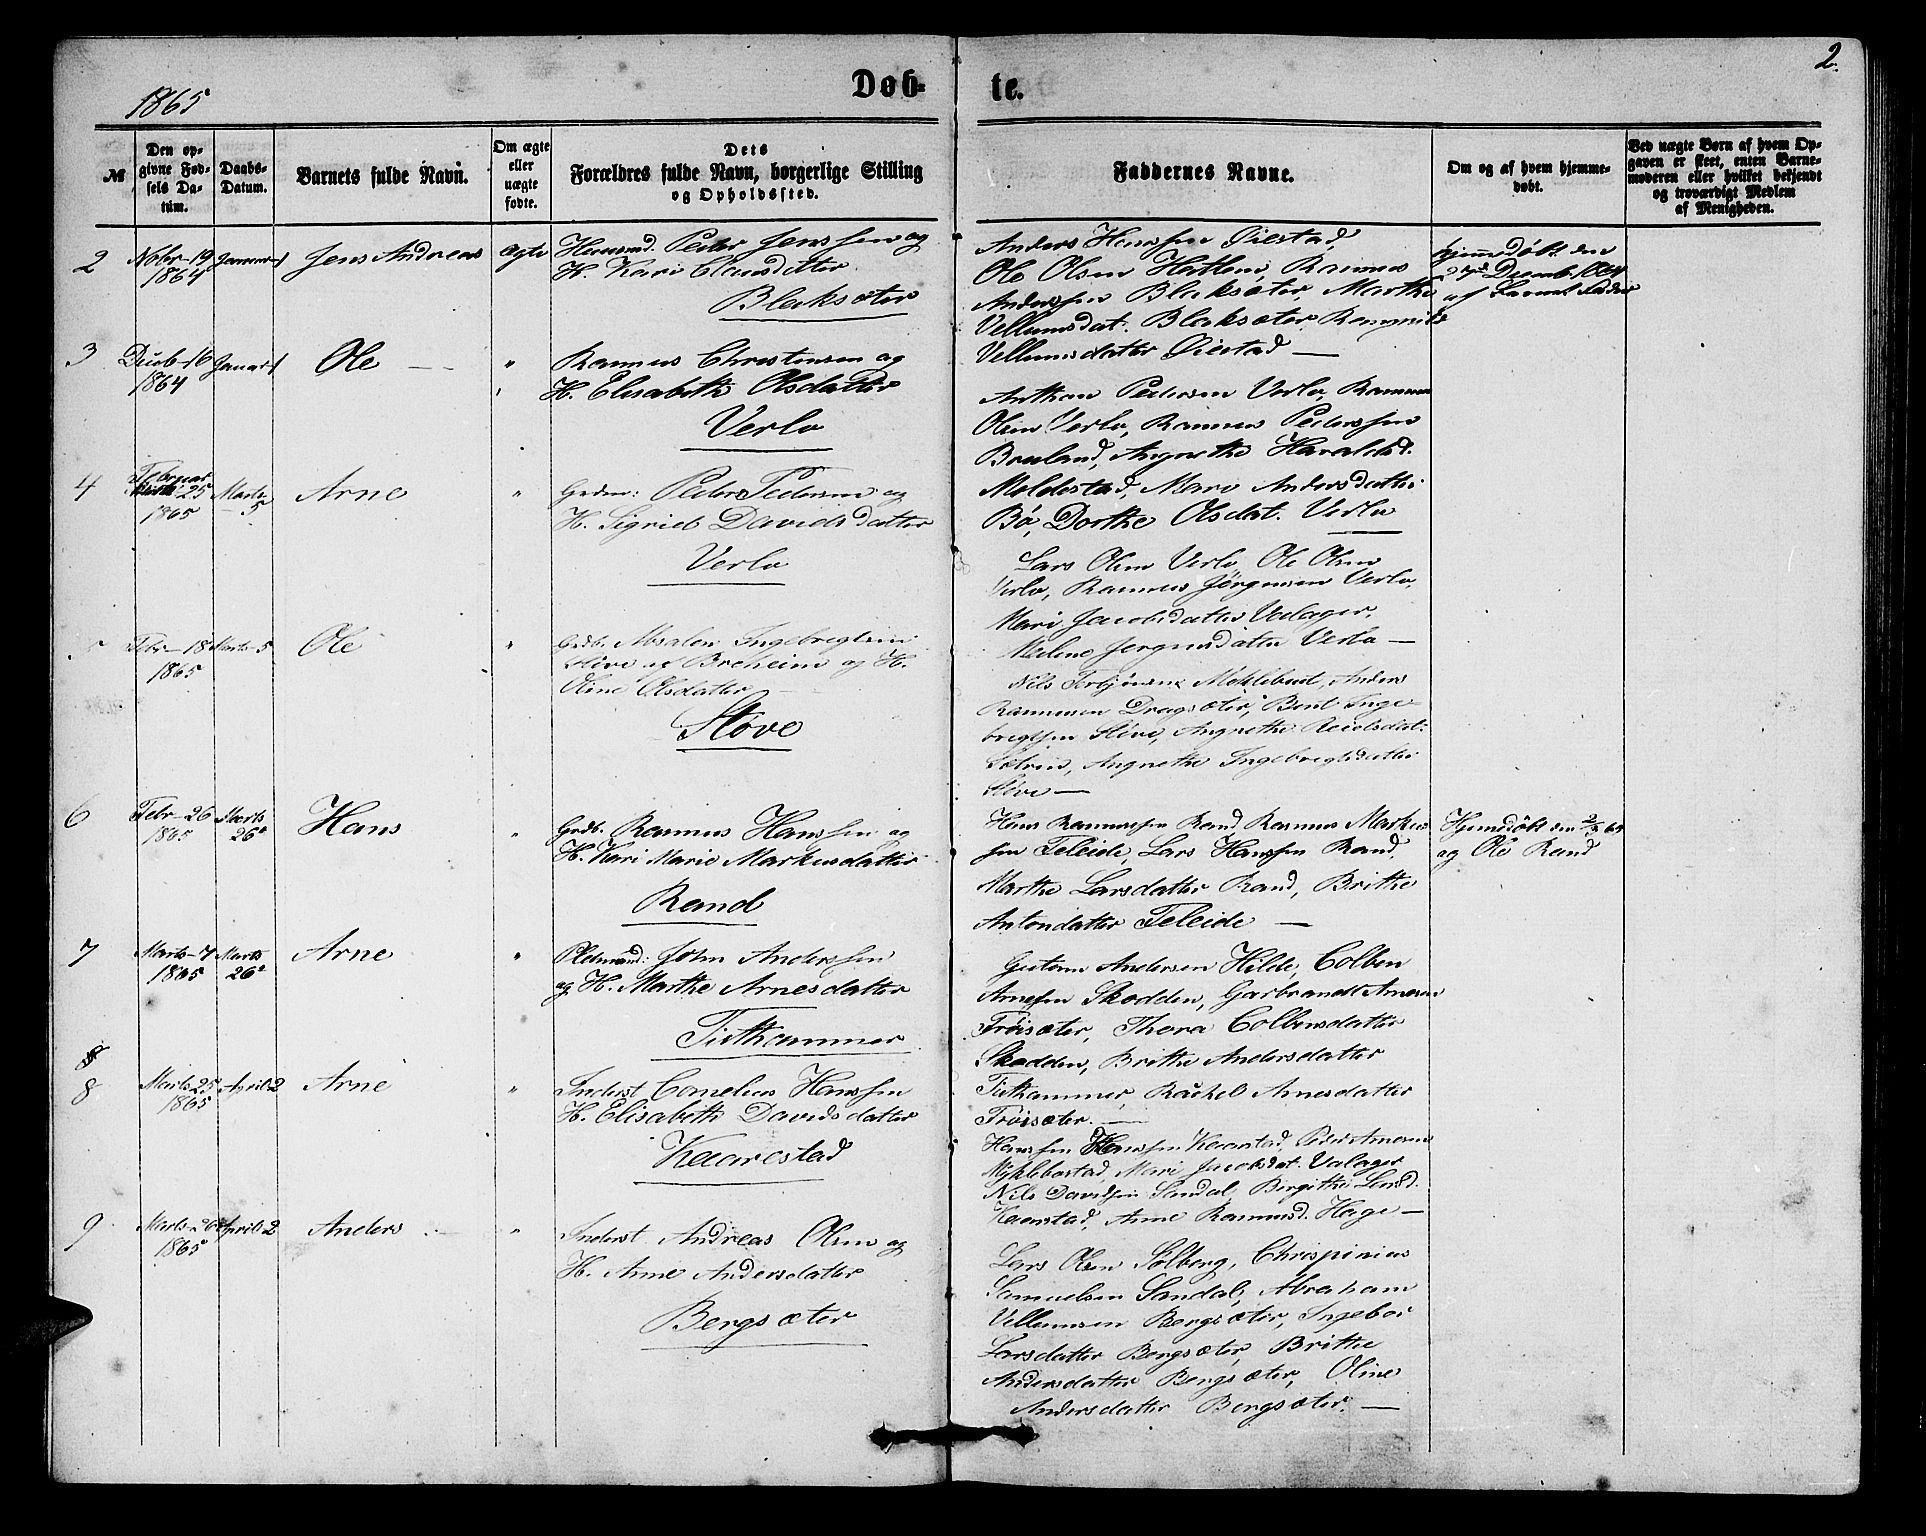 2.
1865
Døb-
te.
№
Den op-
givne Fød-
sels Da-
tum.
Daabs-
Datum.
Barnets fulde Navn.
Om ægte
eller
uægte
fødte.
Dets
Forældres fulde Navn, borgerlige Stilling
og Opholdssted.
Faddernes Navne.
Om og af hvem hjemme-
døbt.
Ved uægte Børn af hvem Op-
gaven er skeet, enten Barne-
moderen eller hvilket bekjendt
og troværdigt Medlem
af Menigheden.
2
Nobr-19
1864
Januar-1
Jens Andreas
Ægte
Huusmd. Peder Jenssen og
H. Kari Clausdatter
Blaksæter
Anders Hanssen Øiestad,
Ole Olsen Hetlem, Rasmus
Anderssen Blaksæter, Marthe
Vellumsdat. Blaksæter,
Vellumsdatter Øiestad —
hjemdøbt den
27de Decemb. 1864
af
3
Decb-16
1864
Januar-1
Ole
"
Rasmus Christensen og
H. Elisabeth Olsdatter
Verlo
Anthon Pedersen Verlo, Rasmus
Olsen Verlo, Rasmus Pederssen
Bruland, Angnethe Haraldsd.
Moldestad, Mari Andersdatter
Bø, Dorthe Olsdat. Verlo
4
Februar
25
1865
Marts
5
Arne
"
Grdm: Peder Pedersen og
H. Sigrid Davidsdatter
Verlo
Lars Olsen Verlo, Ole Olsen
Verlo, Rasmus Jørgensen Verlo,
Mari Jacobsdatter Valager,
Malene Jørgensdatter Verlo —
5
Febr-18
1865
Marts-5
Ole
"
Grdb. Absalon Ingebregtsen
Støve af Breheim og H.
Oline Olsdatter
Støve
Nils Torbjørnsen Myklebust, Anders
Rasmussen Dragsæter, Bent Inge-
bregtsen Støve, Angnethe
Sætren, Angnethe Ingebregtsdatter
Støve —
6
Febr-26
1865
Marts
26de
Hans
"
Grdb. Rasmus Hanssen og
H. Kari Marie Markusdatter
Rand
Hans Rasmussen Rand, Rasmus Markus-
sen Feleide, Lars Hanssen Rand,
Marthe Larsdatter Rand, Brithe
Antondatter Feleide —
Hjemdøbt den 2/3 65
og Ole Rand
7
Marts-7
1865
Marts
26de
Arne
"
Pladsmand: John Anderssen
og H. Marthe Arnesdatter
Tisthammer
Gutorm Andersen Hilde, Colben
Arnessen Skodden, Garbrandt Arnesen
Frøisæter, Thora Colbensdatter
Skodden, Brithe Andersdatter
Tisthammer, Rachel Arnesdatter
Frøisæter. —
8
Marts-25
1865
April-2
Arne
"
Inderst Cornelius Hanssen
H. Elisabeth Davidsdatter
Kaarestad
Hanssen Hanssen Kaarstad, Peder Arnesen
Myklebostad, Mari Jacobsdat. Valager
Nils Davidsen Sandal, Birgithe Larsd.
Kaarstad, Anne Rasmusd. Hage —
9
Marts-26
1865
April-2
Anders
"
Inderst Andreas Olsen og
H. Anne Andersdatter
Bergsæter
Lars Olsen Solberg, Chrispinius
Samuelsen Sandal, Abraham
Vellumsen Bergsæter, Ingebor
Larsdatter Bergsæter, Brithe
Andersdatter Bergsæter, Oline
Andersdatter Bergsæter. —